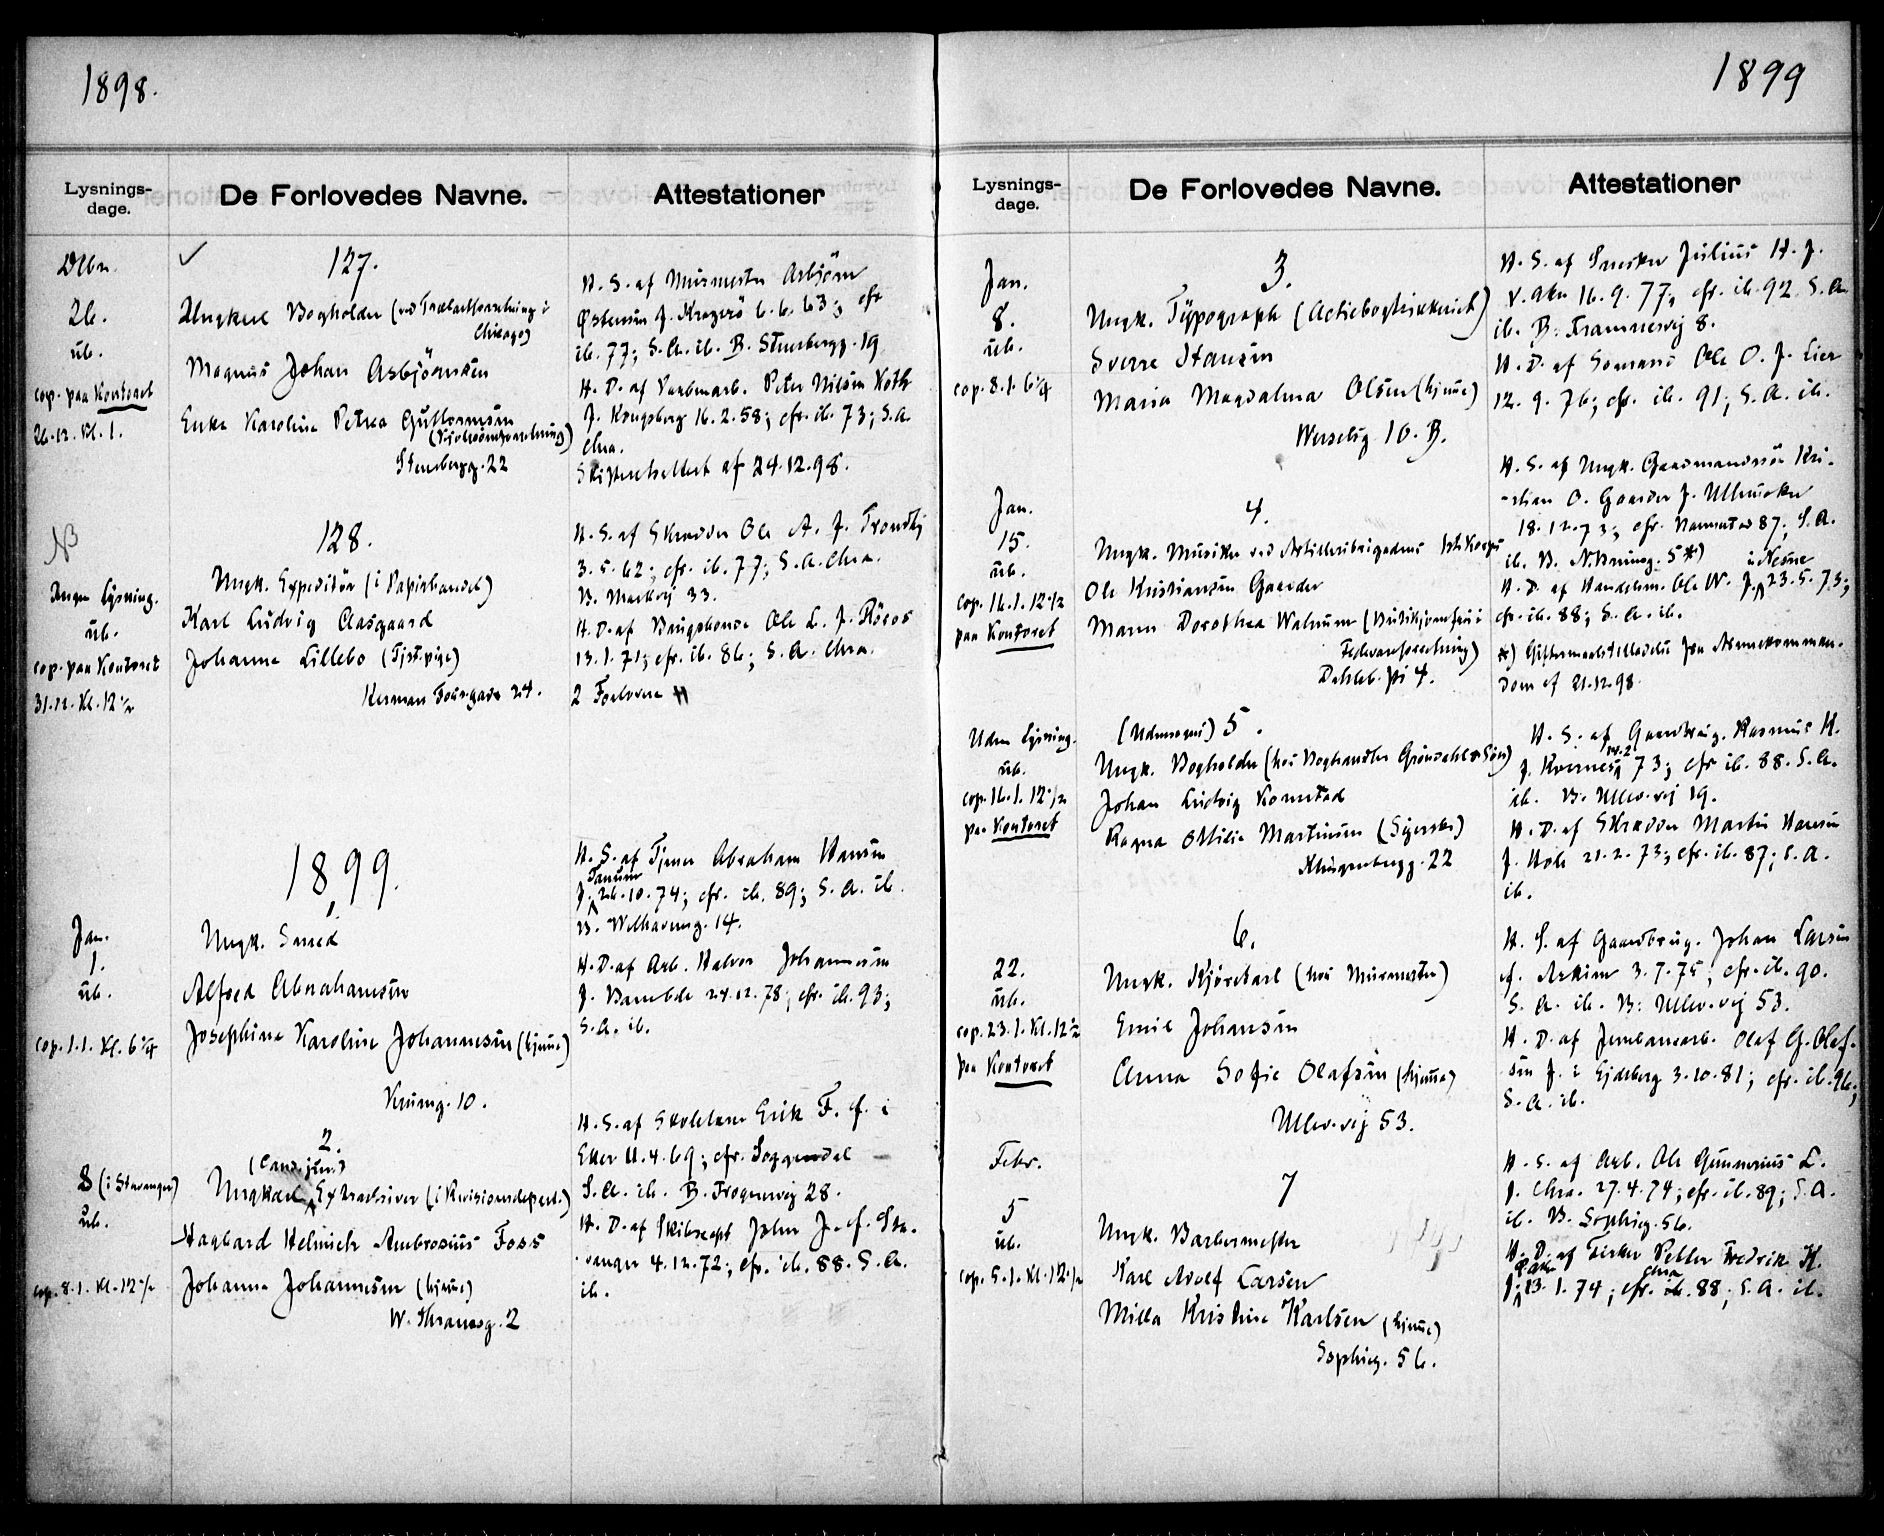 1898.
Lysnings-
dage.
De Forlovedes Navne.
Attestationer
26.
üb.
cop. paa Kontoret
26.12. Kl. 1.
127.
Ungkarl Bogholder (ved i
Chicago)
Magnus Johan Asbjörnsen
Enke Karoline Petrea Guttormsen
Stensbergg. 22
H. S. af Murmester Asbjörn
f. Kragerö 6.6.63; cfr
ib. 77; S.A. ib. B. Stensbergg. 19
H. D. af Peter Nilsen Roth
f. Kongsberg 16.2.58; cfr. ib. 73; S.A.
Chra.
Skifteattest af 24.12.98.
NB
Ingen Lysning.
üb.
cop. paa Kontoret
31.12. Kl. 12 1/2
128.
Ungk. Expeditör (i Papirhandel)
Karl Ludvig Aasgaard
Johanne Lillebo (Tjst.pige)
Herman Fossgade 24.
H. S. af Skrædder Ole A. f. Trondhj
3.5.62; cfr. ib. 77; S.A. Chra.
B. Markvej 33.
H. D. af Ole L. f. Röros
13.1.71; cfr. ib. 86; S.A. Chra.
2 Forlovere
1899.
Jan.
1.
üb.
cop. 1.1. Kl. 6 3/4
1.
Ungk. Smed
Alfred Abrahamsen
Josephine Karoline Johannesen (hjemme)
Krumg. 10.
H. S. af Tjener Abraham Hansen
Tanum
f. 26.10.74; cfr. ib. 89; S. A. ib.
B. Welhavensg. 14.
H. D. af Arb. Halvor Johannesen
f. Bamble 24.12.78; cfr. ib. 93;
S.A. ib.
8 (i Stavanger)
üb.
cop. 8.1. Kl. 12 1/2
2.
(Cand. jur.)
Ungkarl Extraskriver (i Revisionsdepart.)
Hagbard Helmich Ambrosius Foss
Johanne Johannesen (hjemme)
W. Thranesg. 2
H. S. af Skolelærer Erik F. f. i
Eker 11.4.69; cfr. Soggendal
S.A. ib. B. Frognervej 28.
H. D. af Skibskapt John J. f. Sta-
vanger 4.12.72; cfr. ib. 88. S. A.
ib.
1899
Lysnings-
dage.
De Forlovedes Navne.
Attestationer
Jan.
8.
üb.
cop. 8.1. 6 3/4
3.
Ungk. Typograph (Actiebogtrykkeriet)
Sverre Hansen
Maria Magdalena Olsen (hjemme)
10. B.
H. S. af Snedker Julius H. f.
V. Aker 16.9.77; cfr. ib. 92. S.A.
ib. B. Framnesvej 8.
H. D. af Sömand Ole O. f. Eier
12.9.76; cfr. ib. 91; S.A. ib.
Jan.
15.
üb.
cop. 16.1. 12 1/2
paa Kontoret
4.
Ungk. Musiker ved Artilleribrigadens 1ste Korps
Ole Kristiansen Gaarder
Maren Dorothea Walnum (Butikjomfru i
Dalsb. sti 4.
H. S. af Ungk. Gaardmandssön Kri-
-stian O. Gaarder f. Ullensaker
18.12.73; cfr. Nannestad 87; S.A.
ib. B. 5 *)
i Nesne
H. D. af Handelsm. Ole W. f. 23.5.73;
cfr. ib. 88; S. A. ib.
*) Giftermaalstilladelse fra Armékomman-
do af 21.12.98
Uden Lysning.
üb.
cop. 16.1. 12 1/2
paa Kontoret
5.
Ungk. Bogholder (hos Boghandler Gröndahl & Sön)
Johan Ludvig Komstad
Ragna Ottilie Martinsen (Syerske)
Klingenbergg. 22
H. S. af Gaardbrug. Rasmus H.
f. Kvernes 73; cfr ib. 88. S.A.
ib. B. Ullev. vej 19.
H. D. af Skrædder Martin Hansen
f. Hole 21.2.73; cfr. ib. 87; S.A.
ib.
22.
üb.
cop. 23.1. Kl. 12 1/2
paa Kontoret
6.
Ungk. Kjörekarl (hos Murmester)
Emil Johansen
Anna Sofie Olafsen (hjemme)
Ullev. vej 53.
H. S. af Gaardbrug. Johan Larsen
f. Askim 3.7.75; cfr. ib. 90.
S. A. ib. B: Ullev. vej 53.
H. D. af Jernbanearb. Olaf G. Olaf-
sen f. i Ejdsberg 3.10.81; cfr. ib. 96;
S.A. ib.
Febr.
5
üb.
cop. 5.1. Kl. 12 1/2
7
Ungk. Barbermester
Karl Adolf Larsen
Milla Kristine Karlsen (hjemme)
Sophieg. 56.
H. S. af Arb. Ole Gunnerius L.
f. Chra. 27.4.74; cfr. ib. 89; S.A.
ib. B. Sophieg. 56.
H. D. af Fisker Petter Fredrik K.
Chra
f. 13.1.74; cfr. ib. 88; S.A. ib.